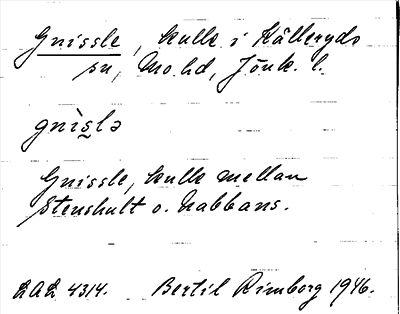 Gnissle, kulle i Kålleryds
sn, Mo hd, Jönk. l.
gnìs̬lə
Gnissle, kulle mellan
Stenshult o. Nabbans.
LAL 4314. Bertil Rimborg 1946.